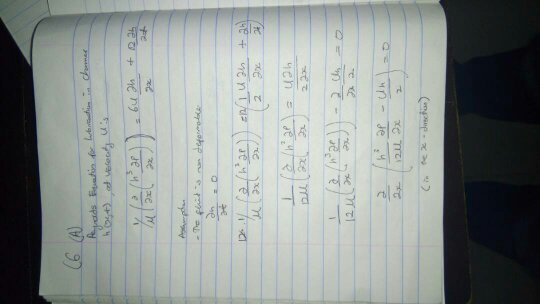 (6 (A)
Reynolds Equation for lubrication in channel
h(x,t), at velocity U is
1/μ (∂/∂x (h³ ∂P/∂x)) = 6U ∂h/∂x + 12 ∂h/∂t
Assumption
- The fluid is non deformable
∂h/∂t = 0
1/μ (∂/∂x (h³ ∂P/∂x)) = 12 (1/2 U ∂h/∂x + ∂h/∂t)
1/12μ (∂/∂x (h³ ∂P/∂x)) = U∂h/2∂x
1/12μ (∂/∂x (h³ ∂P/∂x)) - ∂/∂x Uh/2 = 0
∂/∂x (h³/12μ ∂P/∂x - Uh/2) = 0
(in the x-direction)